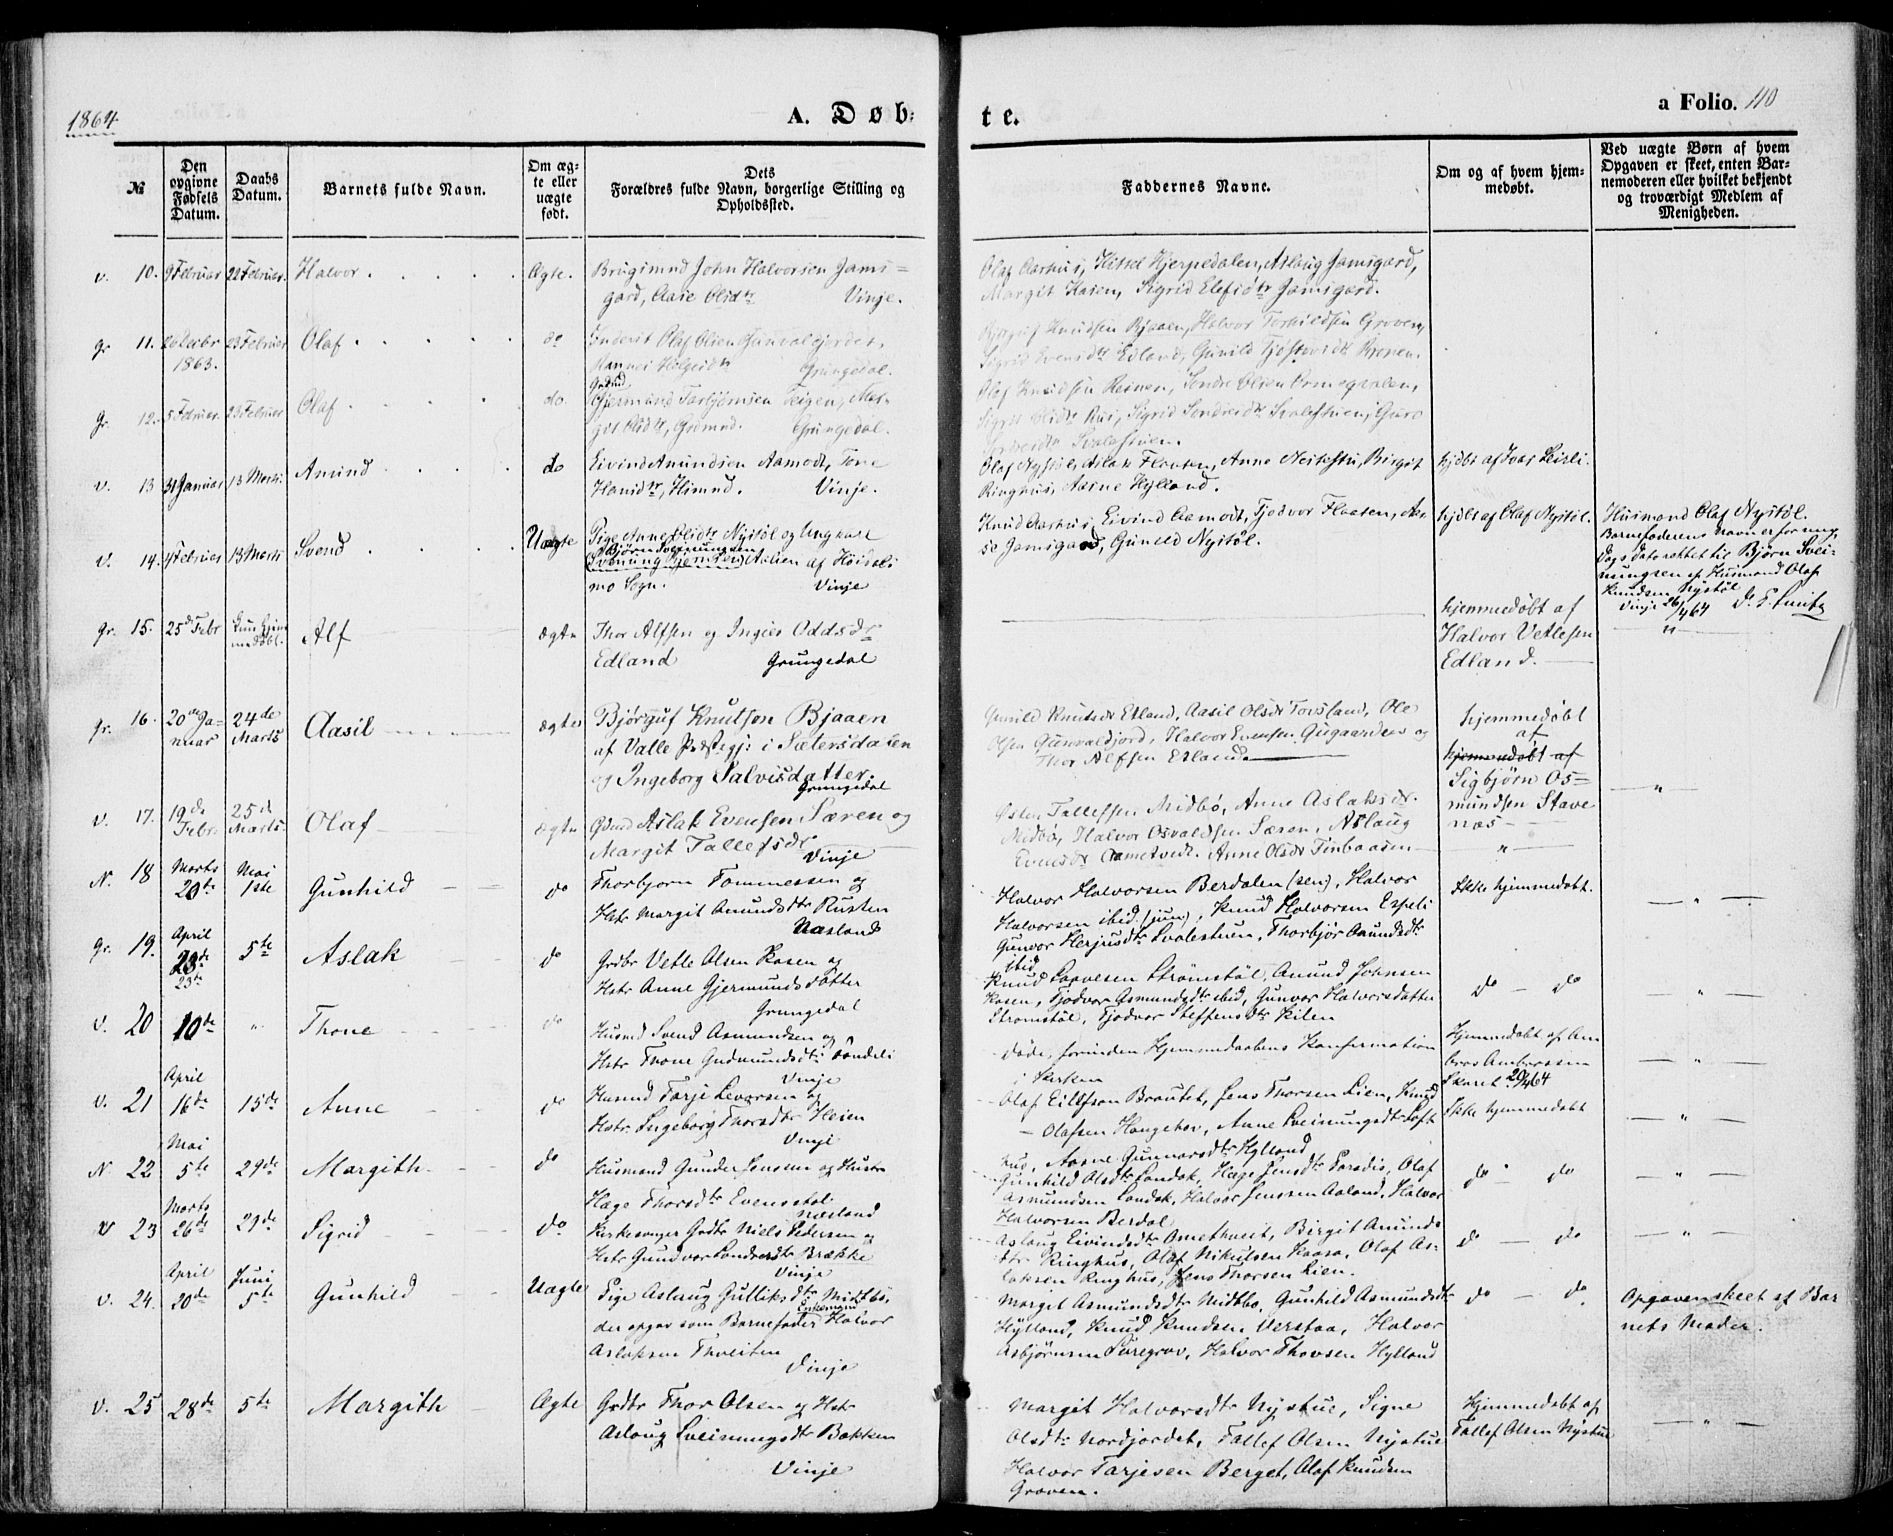 1864
A. Døb-
te.
a Folio. 110
№
Den opgivne Fødsels Datum.
Daabs Datum.
Barnets fulde Navn.
Om ægte eller uægte født.
Dets Forældres fulde Navn, borgerlige Stilling og Opholdssted.
Faddernes Navne.
Om og af hvem hjemmedøbt.
Ved uægte Børn af hvem Opgaven er skeet, enten Barnemoderen eller hvilket bekjendt og troværdigt Medlem af Menigheden.
v. 10. 9 Februar 22 Februar. Halvor Ægte. Brugimnd John Halvorsen Jams=
gard, Aase Olidtr Vinje.
Olaf Aarhus, Kittel Hjerpedalen, Aslaug Jamsgard,
Margit Kasen, Sigrid Elefsdtr Jamsgard.
gr. 11. 26 Decbr 1863. 23 Februar Olaf do Inderst Olaf Olsen Gunvaldjordet,
Grungedal.
Bjørguf Knudsen Bjaaen, Halvor Torkildsen Groven,
Sigrid Evensdtr Edland, Gunild
gr. 12. 5 Februar. 23 Februar Olaf do. Gjermund Torbjørnsen Teigen, Mar-
git Olidtr, Grdmnd. Grungedal.
Olaf Knudsen
v. 13 31 Januar 13 Marts. Amund do Eivind Amundsen Aamodt, Tone
Hansdtr, Himnd. Vinje.
Olaf Nystøl, Aslak Flaaten, Anne Neistestu, Birgit
Ringhus, Aasne Hylland.
hjdbt af Ivar Leirli.
v. 14. 4 Februar 13 Marts Svend Uægte Pige Anne Olidtr Nystøl og Ungkarl
Bjørn Sveinungsen
af Høidals
mo Sogn. Vinje
Knud Aarhus, Eivind Aamodt, Tjodvor Flaaten, Aa-
se Jamsgard, Gunild Nystøl.
hjdbt af Olaf Nystøl.
Husmand Olaf Nystøl.
Barnefaderens Navn er for nug
Dags Dato rettet til Bjørn Svei-
nungsen af Husmand Olaf
Knudsen Nystøl
Vinje 26/4 64
gr. 15. 25de Febr Kun hjem
medøbt. Alf ægte Thor Alfsen og Ingier Oddsdr
Edland Grungedal
hjemmedøbt af
Halvor Vetlesen
Edland.
gr. 16. 20de Ja-
nuar 24de
Marts Aasil ægte Bjørguf Knutson Bjaaen
af Valle Præstegj: i Sætersdalen
og Ingeborg Salvisdatter.
Grungedal
Gunild Knutsdr Edland, Aasil Olsdr Tovsland, Ole
Olsen Gunvaldjord, Halvor Evensen Gugaarden og
Thor Alfsen Edland
hjemmedøbt
af
hjemmedøbt af
Sigbjørn Os=
mundsen Stave
næs
v. 17. 19de
Febr. 25de
Marts. Olaf ægte Gdmd Aslak Evensen Særen og
Margit Tallefsdr Vinje
Østen Tallefsen Midbø, Anne Aslaksdr.
Midbø, Halvor Osvaldsen Særen, Aslaug
Evensdr Aametvedt. Anne Olsdr Finbaasen
N. 18 Marts
20de Mai
1ste Gunhild do Thorbjørn Tommessen og
Hstr Margit Amundsdtr Rusten
Næsland
Halvor Halvorsen Berdalen (sen), Halvor
Halvorsen ibid. (jun), Knud Halvorsen Espeli
Gunvor Herjusdtr Svalestuen, Thorbjør Amundsdtr
ibid
Ikke hjemmedøbt.
gr. 19. April
23de
23de 5te Aslak do Grdbr Vetle Olsen Kasen og
Hstr Anne Gjermundsdatter
Grungedal
Knud Sarvesen Strømstøl, Amund Johnsen
Kasen, Tjodvor Asmundsdtr ibid, Gunvor Halvorsdatter
Strømstøl, Tjodvor Steffensdtr Kilen
do do
v. 20 10de " Thone do Husmd Svend Asmundsen og
Hstr Thone Gudmundsdtr
Vinje
Døde, forinden Hjemmedaabens Konfirmation
i Kirken
Hjemmedøbt af Am
bros Ambrossen
Skaret 20/4 64
v. 21 April
16de 15de Anne do Husmd Tarje Levorsen og
Hstr. Ingeborg Thorsdtr Heien
Vinje
Olaf Eilefson Brautet, Jens Thorsen Lien, Knud
Olafsen Haugehov, Anne Sveinungsdtr Loft
hus, Aasne Gunnarsdtr Hylland
Ikke hjemmedøbt
N. 22 Mai
5te 29de Margith do Husmand Gunder Jensen og Hustr
Hæge Thorsdtr Evensstøl
Næsland
Gunhild Olsdtr Landek, Hæge Jensdtr Paradis, Olaf
Asmundsen Landek, Halvor Jenssen Aaland, Halvor
Halvorsen Berdal
do do
v 23 Marts
26de 29de Sigrid do Kirkesanger Grdbr Niels Pedersen og
Hstr Gundvor Sondresdtr Brække
Vinje
Aslaug Eivindsdtr Amethvedt, Birgit Amunds
dtr Ringhus, Olaf Nikulsen Haasa, Olaf As-
laksen Ringhus, Jens Thorsen Lien.
do do
v. 24. April
20de Juni
5te Gunhild Uægte Pige Aslaug Gulliksdtr Midtbø,
der opgav som Barnefader Enkemand Halvor
Aslaksen Thveiten
Vinje
Margit Asmundsdtr Midtbø, Gunhild Asmundsdtr
Hylland, Knud Knudsen Verstaa, Halvor
Asbjørnsen Suregrav, Halvor Thovsen Hylland
do do
Opgaven skeet af Bar
nets Moder.
v. 25 28de 5te Margith Ægte Grdbr Thor Olsen og Hstr
Aslaug Sveinungsdtr Bakken
Vinje
Margit Halvorsdtr Nystue, Signe
Olsdtr Nordjordet, Tallef Olsen Nystue
Halvor Tarjesen Berget, Olaf Knudsen
Graven.
Hjemmedøbt af
Tallef Olsen Nystue